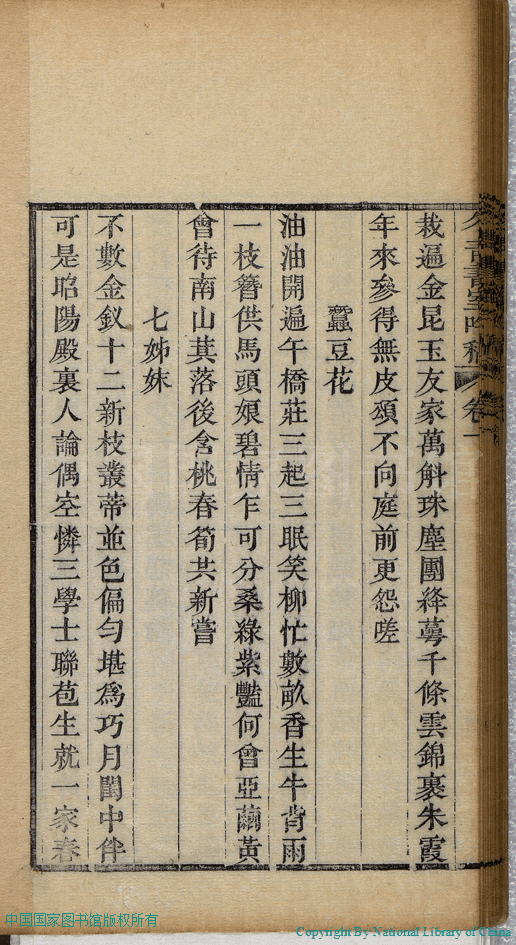 栽遍金昆玉友家萬斛珠塵團絳萼千條雲錦裹朱霞
年來參得無皮頌不向庭前更怨嗟
蠶豆花
油油開遍午橋莊三起三眠笑柳忙數畝香生牛背雨
一枝簪供馬頭娘碧情乍可分桑綠紫豔何曾亞繭黃
會待南山萁落後含桃春筍共新嘗
七姊妹
不數金釵十二新枝叢蒂並色偏勻堪為巧月閨中伴
可是昭陽殿裏人論偶空憐三學士聯苞生就一家春
卷一
中国国家图书馆版权所有
Copyright By National Library of China